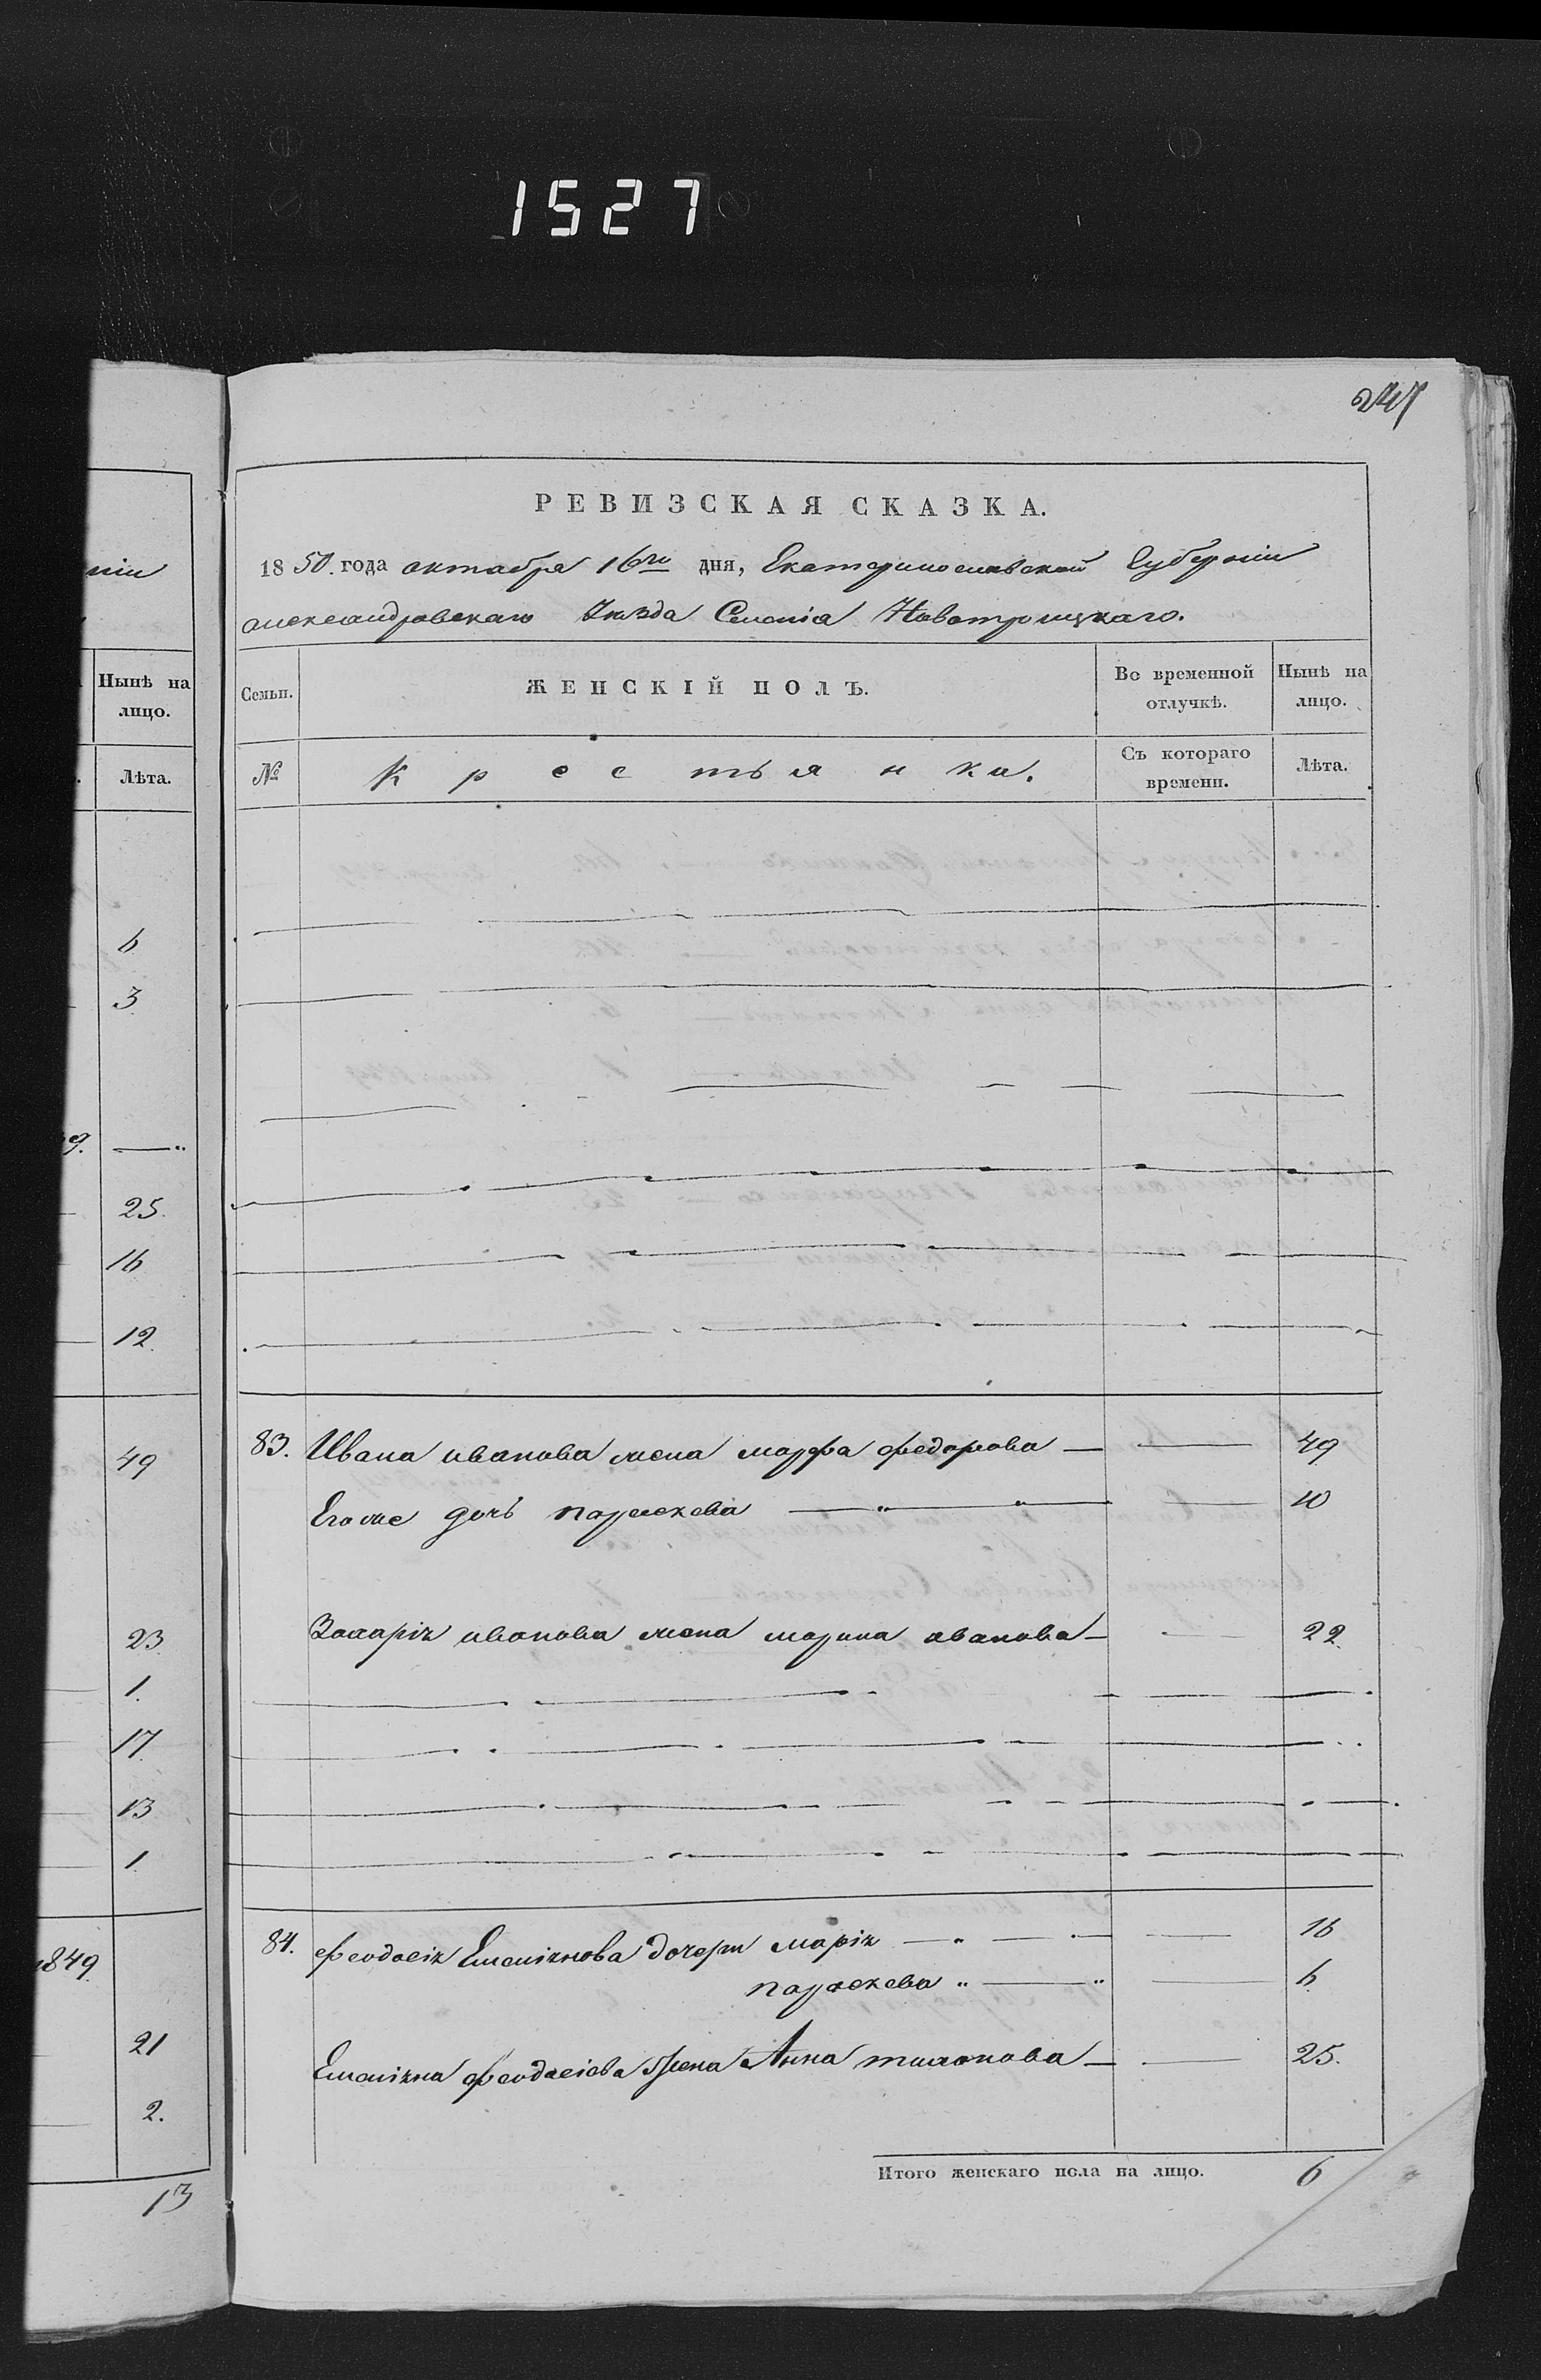 1527
247
РЕВИЗСКАЯ СКАЗКА.
1850. года октября 16го дня, Екатеринославской Губерніи
Александровскаго Уѣзда Селенія Новотроицкаго.
Семьи. ЖЕНСКІЙ ПОЛЪ. Во временной отлучкѣ. Нынѣ на лицо.
№ Крестьянки. Съ котораго времени. Лѣта.
83. Ивана иванова жена марфа федорова — — 49
Его же дочь параскева — " — " — — 10
Захарія иванова жена марина иванова — — 22.
84. феодосія Емеліянова дочери марія — " — — 16
параскева " — " — 6.
Емеліяна феодосіева жена Анна тихонова — — 25.
Итого женскаго пола на лицо. 6
ніи
Нынѣ на
лицо.
Лѣта.
6
3
9. — "
25.
16
12.
49
23
1.
17.
13
1
1849.
21
2.
13